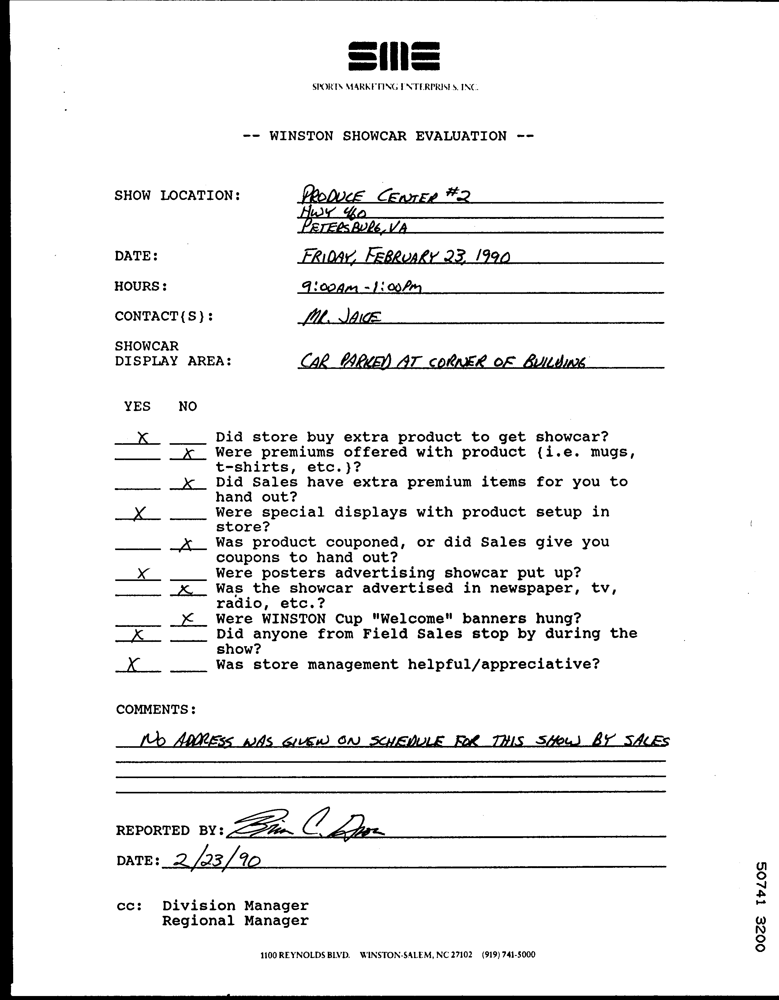 SME
SPORTS MARKETING ENTERPRISES, INC.
-- WINSTON SHOWCAR EVALUATION --
SHOW LOCATION: PRODUCE CENTER #2
HWY 460
PETERSBURG, VA
DATE: FRIDAY, FEBRUARY 23, 1990
HOURS: 9:00AM - 1:00PM
CONTACT(S): MR. JAICE
SHOWCAR
DISPLAY AREA: CAR PARKED AT CORNER OF BUILDING
YES NO
X Did store buy extra product to get showcar?
X Were premiums offered with product (i.e. mugs,
t-shirts, etc.)?
X Did Sales have extra premium items for you to
hand out?
X Were special displays with product setup in
store?
X Was product couponed, or did Sales give you
coupons to hand out?
X Were posters advertising showcar put up?
X Was the showcar advertised in newspaper, tv,
radio, etc.?
X Were WINSTON Cup "Welcome" banners hung?
X Did anyone from Field Sales stop by during the
show?
X Was store management helpful/appreciative?
COMMENTS:
NO ADDRESS WAS GIVEN ON SCHEDULE FOR THIS SHOW BY SALES
REPORTED BY: C.
DATE: 2/23/90
cc: Division Manager
Regional Manager
1100 REYNOLDS BLVD. WINSTON-SALEM, NC 27102 (919) 741-5000
50741 3200